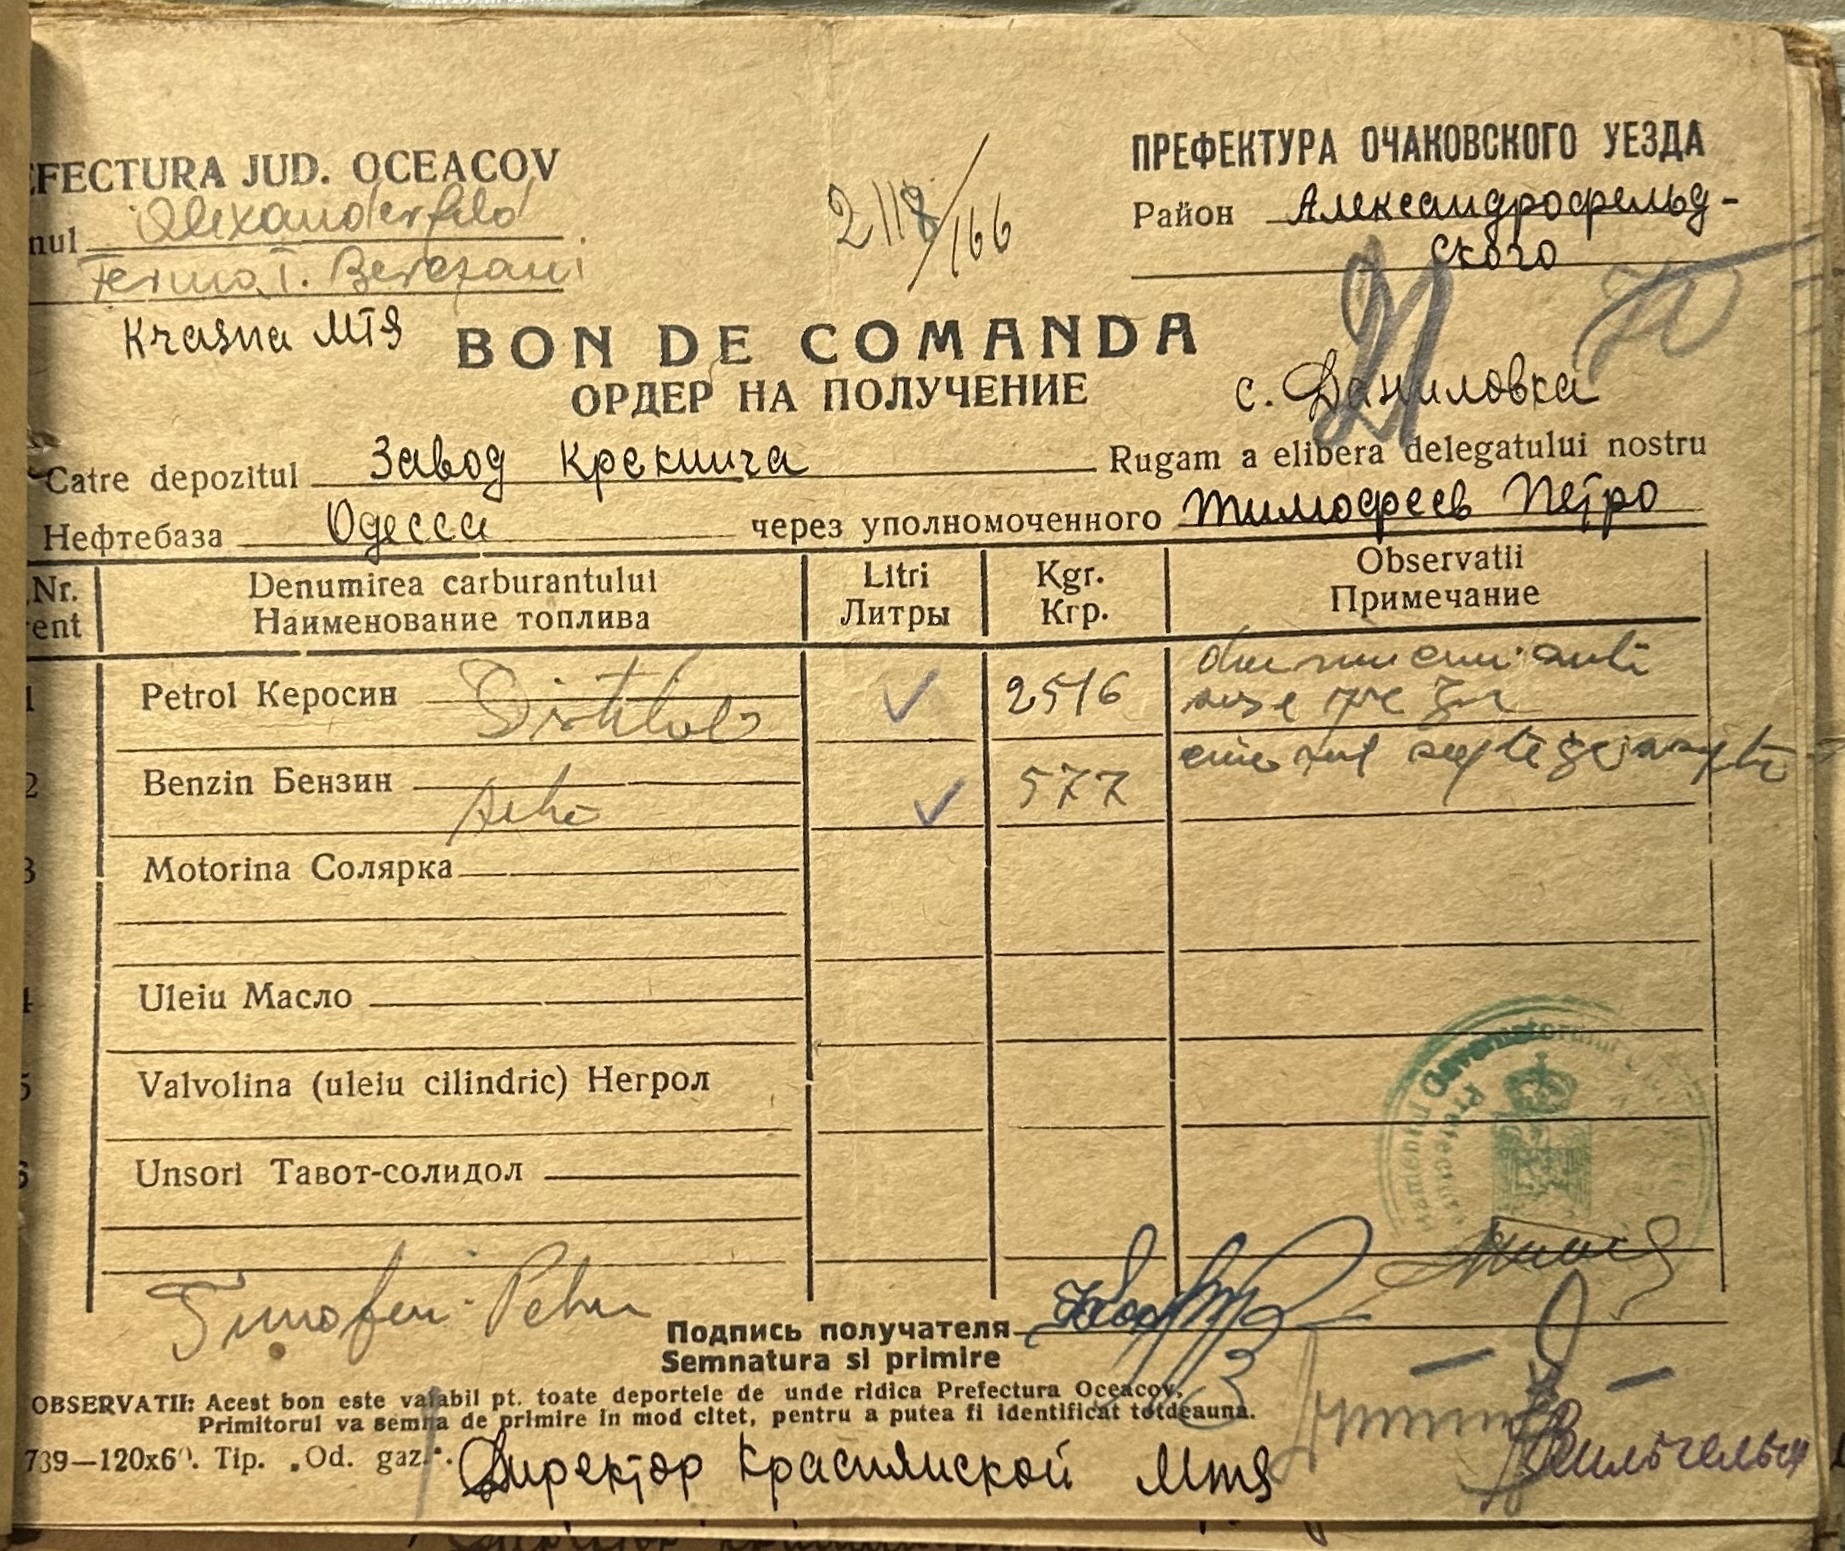 EFECTURA JUD. OCEACOV
nul Alexanderfeld
Ferma T. Berezani
Krasna MTS
2118/166
ПРЕФЕКТУРА ОЧАКОВСКОГО УЕЗДА
Район Александрофельд-
ского
21
70
BON DE COMANDA
ОРДЕР НА ПОЛУЧЕНИЕ
с. Даниловка
Catre depozitul Завод Крекинга Rugam a elibera delegatului nostru
Нефтебаза Одесса через уполномоченного Тимофеев Петро
Nr. Denumirea carburantului Litri Kgr. Observatii
rent Наименование топлива Литры Кгр. Примечание
1 Petrol Керосин Distilat ✓ 2516
2 Benzin Бензин ✓ 577
3 Motorina Солярка
4 Uleiu Масло
5 Valvolina (uleiu cilindric) Негрол
6 Unsori Тавот-солидол
Guvernatorului
Prefectura
Timoferi Petru
Подпись получателя
Semnatura si primire
OBSERVATII: Acest bon este valabil pt. toate deportele de unde ridica Prefectura Oceacov,
Primitorul va semna de primire in mod citet, pentru a putea fi identificat totdeauna.
739—120x60. Tip. „Od. gaz.".
Директор Краснянской Мтs